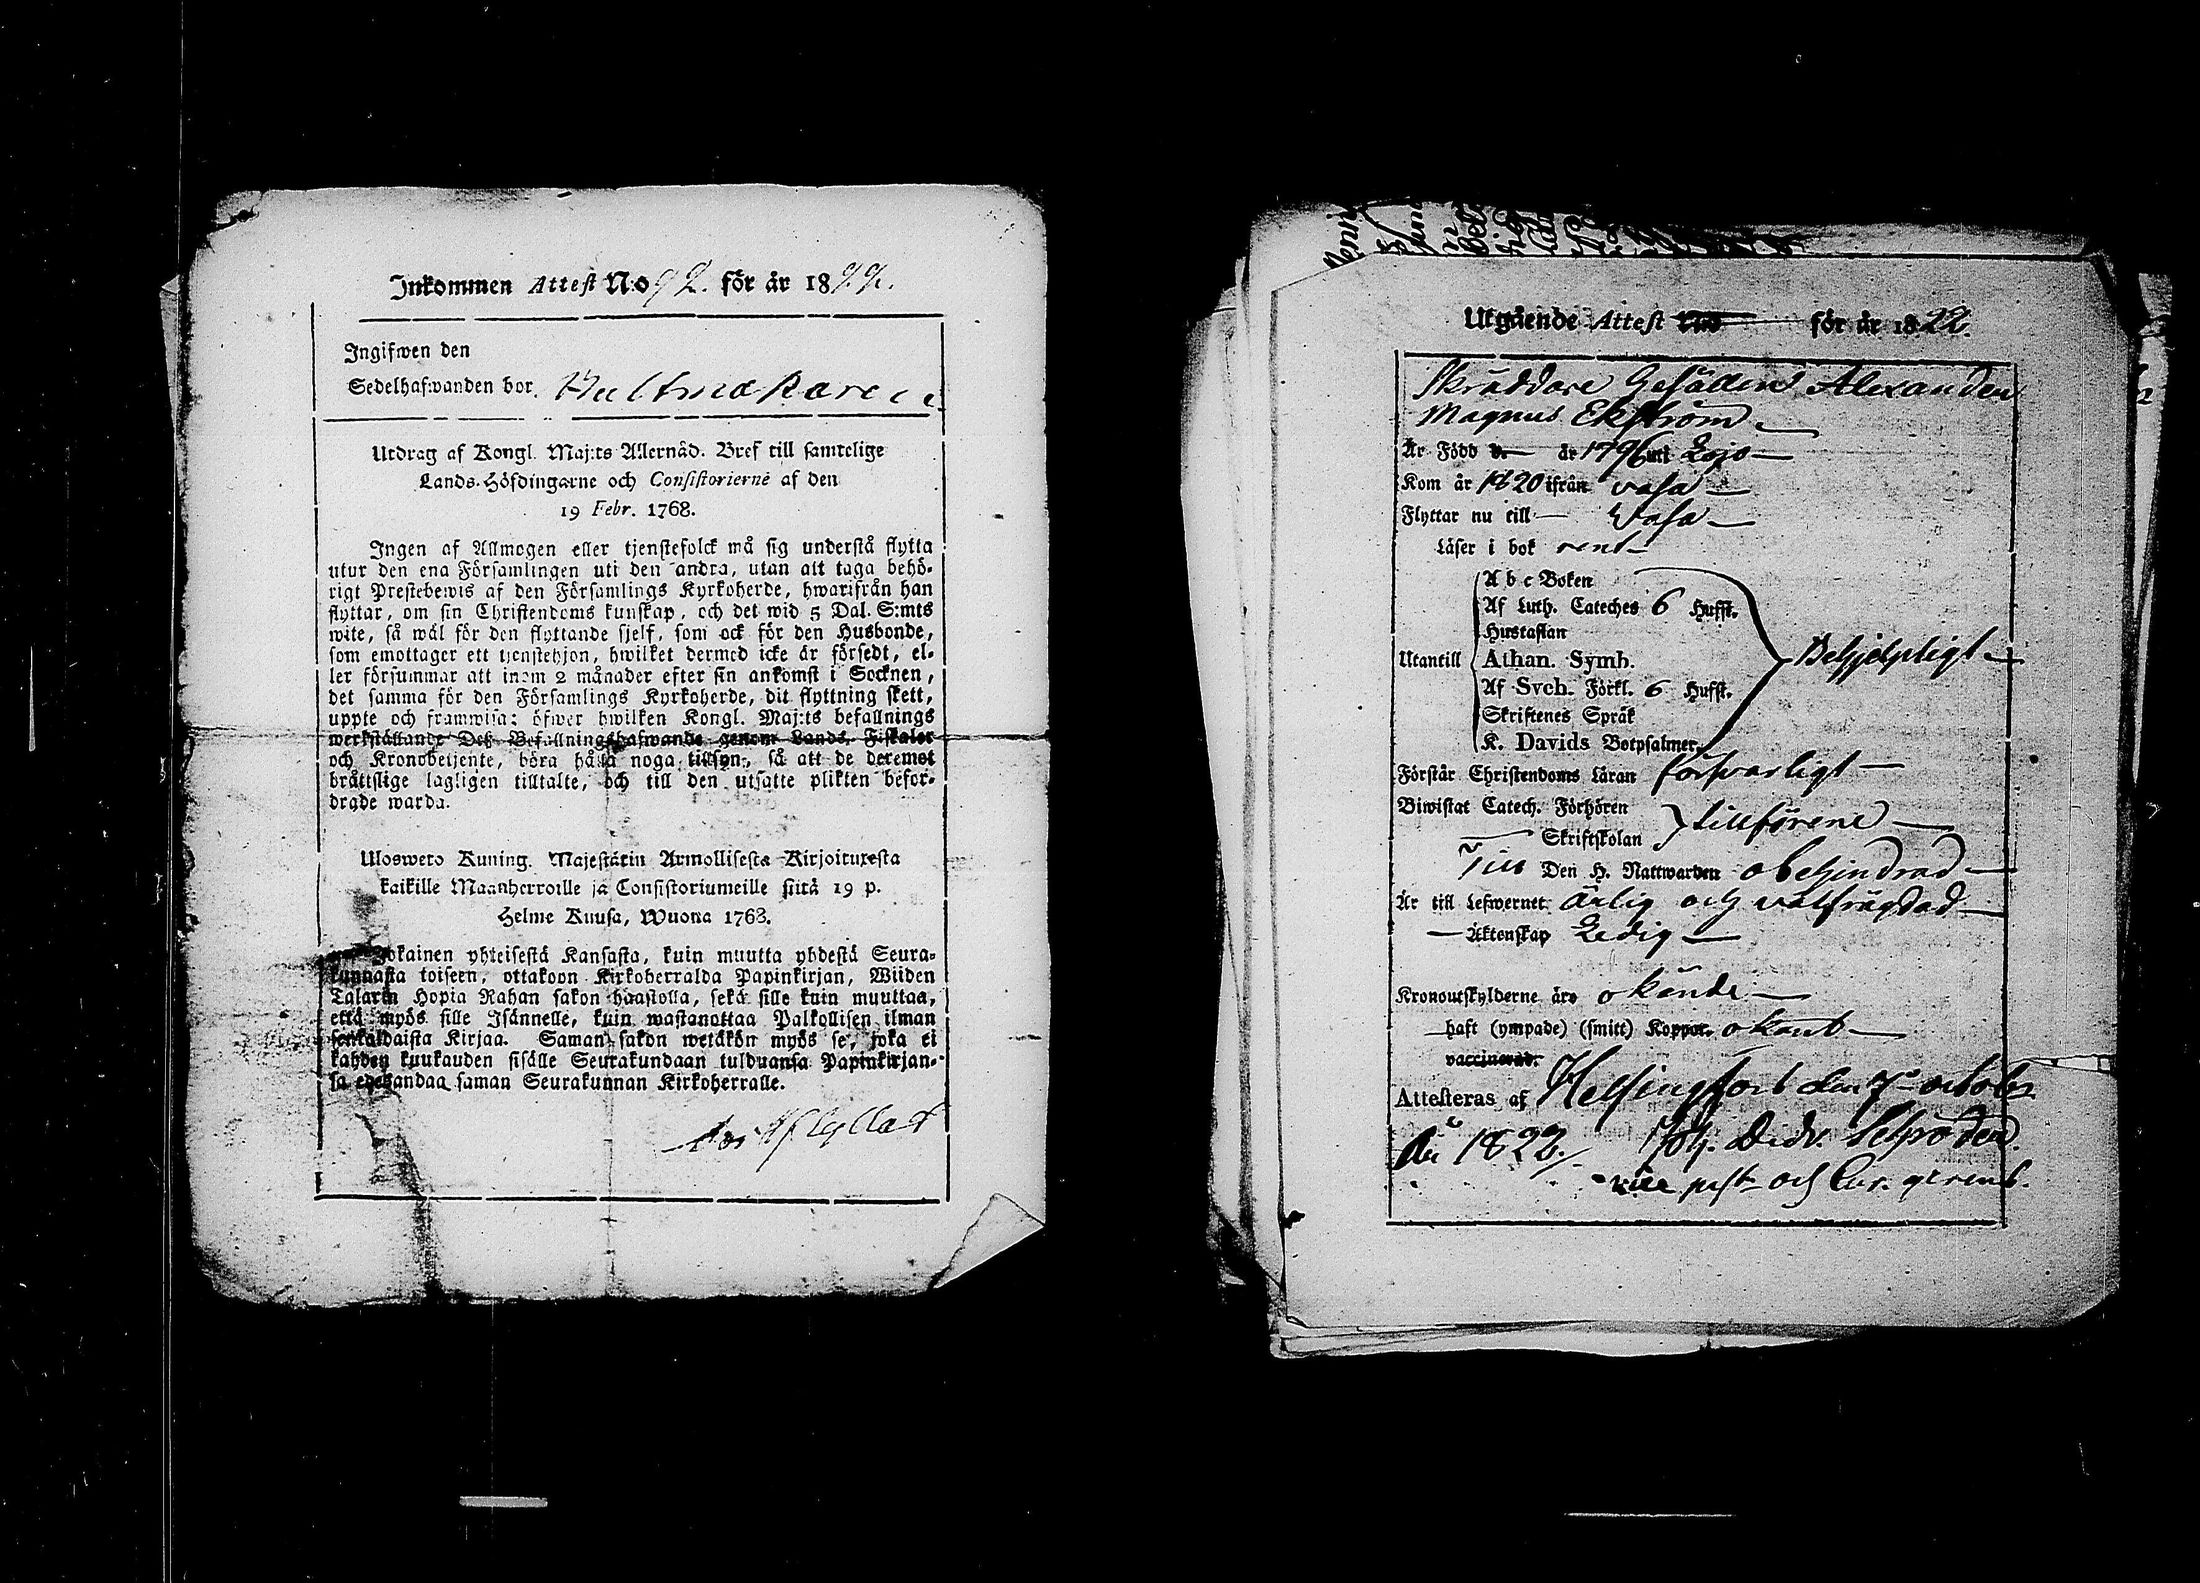 Inkommen Attest N:o 92. för år 1822.
Ingifwen den
Sedelhafwanden bor. Hultmakare
Utdrag af Kongl. Maj:ts Allernåd. Bref till samtelige
Lands-Höfdingarne och Consistorierne af den
19 Febr. 1768.
Ingen af Allmogen eller tjenstefolck må sig understå flytta
utur den ena Församlingen uti den andra, utan att taga behö-
rigt Prestebewis af den Församlings Kyrkoherde, hwarifrån han
flyttar, om sin Christendoms kunskap, och det wid 5 Dal. S:mts
wite, så wäl för den flyttande sjelf, som ock för den Husbonde,
som emottager ett tjenstehjon, hwilket dermed icke är försedt, el-
ler försummar att inom 2 månader efter sin ankomst i Socknen,
det samma för den Församlings Kyrkoherde, dit flyttning skett,
uppte och framwisa: öfwer hwilken Kongl. Maj:ts befallnings
werkställande Deß Befallningshafwande genom Lands-Fiskaler
och Kronobetjente, böra hålla noga tillsyn, så att de deremot
bråttslige lagligen tilltalte, och till den utsatte plikten befor-
drade warda.
Ulosweto Kuning. Majestätin Armollisesta Kirjoituxesta
kaikille Maanherroille ja Consistoriumeille siitä 19 p.
Helme Kuusa, Wuona 1768.
Jokainen yhteisestä Kansasta, kuin muutta yhdestä Seura-
kunnasta toiseen, ottakoon Kirkoherralda Papinkirjan, Wiiden
Talarin Hopia Rahan sakon haastolla, sekä sille kuin muuttaa,
että myös sille Isännelle, kuin wastanottaa Palkollisen ilman
senkaldaista Kirjaa. Saman sakon wetäkön myös se, joka ei
kahden kuukauden sisälle Seurakundaan tulduansa Papinkirjan-
sa edeskandaa saman Seurakunnan Kirkoherralle.
Utgående Attest N:o för år 1822.
Skräddare Gesällen Alexander
Magnus Ekström
Är Född d. år 1796 uti Lojo
Kom år 1820 ifrån Vasa
Flyttar nu till Vasa
Läser i bok rent
Utantill
A b c Boken
Af Luth. Cateches 6 Hufst.
Hustaflan
Athan. Symb.
Af Sveb. Förkl. 6 Hufst.
Skriftenes Språk
K. Davids Botpsalmer.
Behjelpligt
Förstår Christendoms Läran försvarligt
Biwistat Catech. Förhören
Skriftskolan
tillförene
Till Den H. Nattwarden obehindrad
Är till Lefwernet Ärlig och välfrägdad
Äktenskap Ledig
Kronoutskylderne äro okände
haft (ympade) (smitt) Koppor. okänt
vaccinerad.
Attesteras af Helsingfors den 7 october
År 1822. Joh. Dedr. Schröder
vice past. och Cur. gerens.